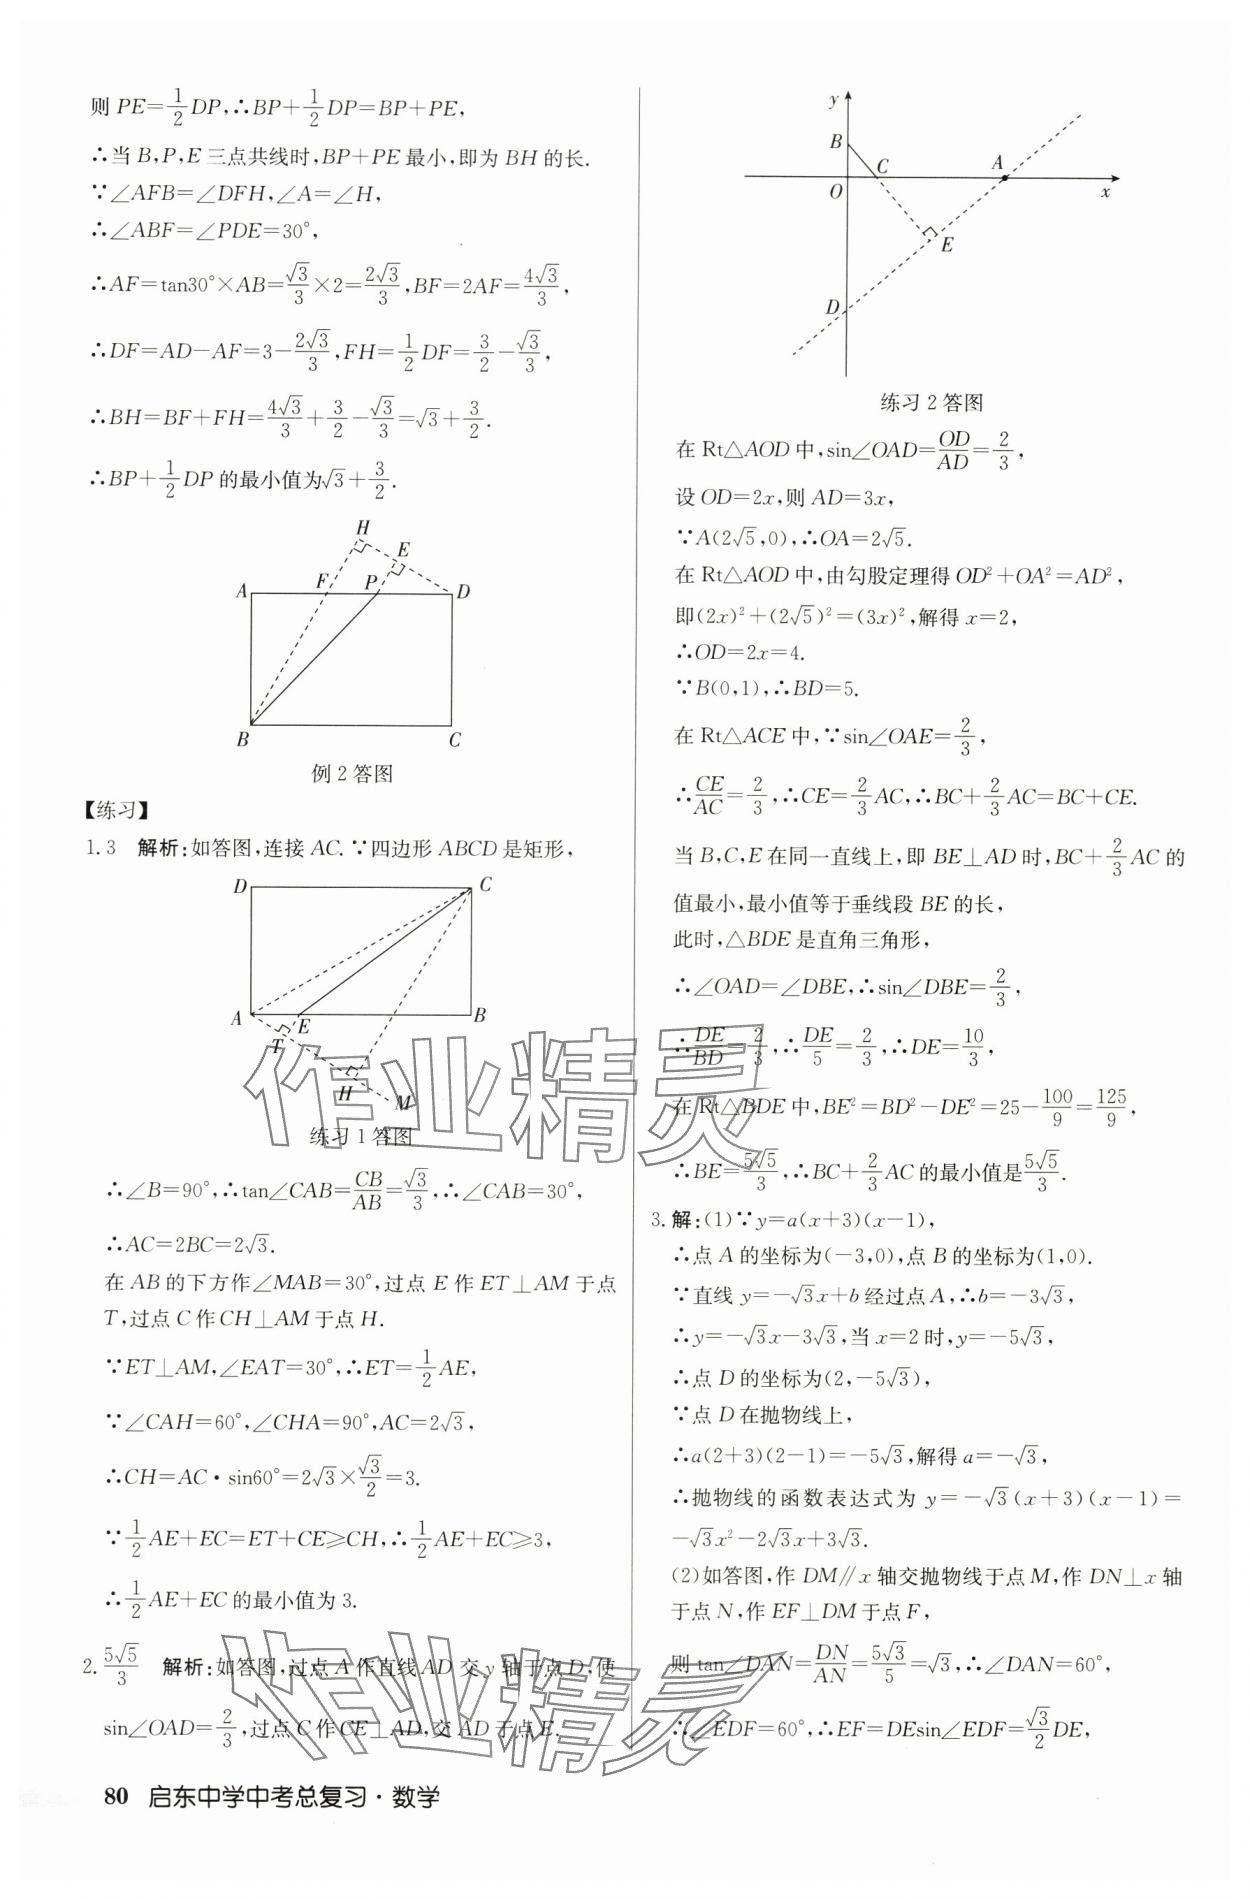 则 PE=1/2 DP,∴BP+1/2 DP=BP+PE,
∴当 B,P,E 三点共线时,BP+PE 最小,即为 BH 的长.
∵∠AFB=∠DFH,∠A=∠H,
∴∠ABF=∠PDE=30°,
∴AF=tan30°×AB=√3/3×2=2√3/3,BF=2AF=4√3/3,
∴DF=AD-AF=3-2√3/3,FH=1/2 DF=3/2-√3/3,
∴BH=BF+FH=4√3/3+3/2-√3/3=√3+3/2.
∴BP+1/2 DP 的最小值为√3+3/2.
H
E
F
P
A
D
B
C
例 2 答图
【练习】
1. 3 解析:如答图,连接 AC. ∵四边形 ABCD 是矩形,
D
C
A
E
B
T
H
M
练习 1 答图
∴∠B=90°,∴tan∠CAB=CB/AB=√3/3,∴∠CAB=30°,
∴AC=2BC=2√3.
在 AB 的下方作∠MAB=30°,过点 E 作 ET⊥AM 于点
T,过点 C 作 CH⊥AM 于点 H.
∵ET⊥AM,∠EAT=30°,∴ET=1/2 AE,
∵∠CAH=60°,∠CHA=90°,AC=2√3,
∴CH=AC·sin60°=2√3×√3/2=3.
∵1/2 AE+EC=ET+CE≥CH,∴1/2 AE+EC≥3,
∴1/2 AE+EC 的最小值为 3.
2. 5√5/3 解析:如答图,过点 A 作直线 AD 交 y 轴于点 D,使
sin∠OAD=2/3,过点 C 作 CE⊥AD,交 AD 于点 E.
y
B
C
A
O
x
E
D
练习 2 答图
在 Rt△AOD 中,sin∠OAD=OD/AD=2/3,
设 OD=2x,则 AD=3x,
∵A(2√5,0),∴OA=2√5.
在 Rt△AOD 中,由勾股定理得 OD²+OA²=AD²,
即(2x)²+(2√5)²=(3x)²,解得 x=2,
∴OD=2x=4.
∵B(0,1),∴BD=5.
在 Rt△ACE 中,∵sin∠OAE=2/3,
∴CE/AC=2/3,∴CE=2/3 AC,∴BC+2/3 AC=BC+CE.
当 B,C,E 在同一直线上,即 BE⊥AD 时,BC+2/3 AC 的
值最小,最小值等于垂线段 BE 的长,
此时,△BDE 是直角三角形,
∴∠OAD=∠DBE,∴sin∠DBE=2/3,
∴DE/BD=2/3,∴DE/5=2/3,∴DE=10/3,
在 Rt△BDE 中,BE²=BD²-DE²=25-100/9=125/9,
∴BE=5√5/3,∴BC+2/3 AC 的最小值是5√5/3.
3. 解:(1)∵y=a(x+3)(x-1),
∴点 A 的坐标为(-3,0),点 B 的坐标为(1,0).
∵直线 y=-√3x+b 经过点 A,∴b=-3√3,
∴y=-√3x-3√3,当 x=2 时,y=-5√3,
∴点 D 的坐标为(2,-5√3),
∵点 D 在抛物线上,
∴a(2+3)(2-1)=-5√3,解得 a=-√3,
∴抛物线的函数表达式为 y=-√3(x+3)(x-1)=
-√3x²-2√3x+3√3.
(2)如答图,作 DM∥x 轴交抛物线于点 M,作 DN⊥x 轴
于点 N,作 EF⊥DM 于点 F,
则 tan∠DAN=DN/AN=5√3/5=√3,∴∠DAN=60°,
∴∠EDF=60°,∴EF=DEsin∠EDF=√3/2 DE,
作业精灵
作业精灵
80 启东中学中考总复习·数学